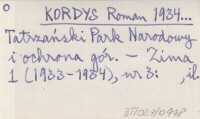 KORDYS Roman 1934...
Tatrzański Park Narodowy
i ochrona gór. - Zima
1 (1933-1934), nr 3: , il.